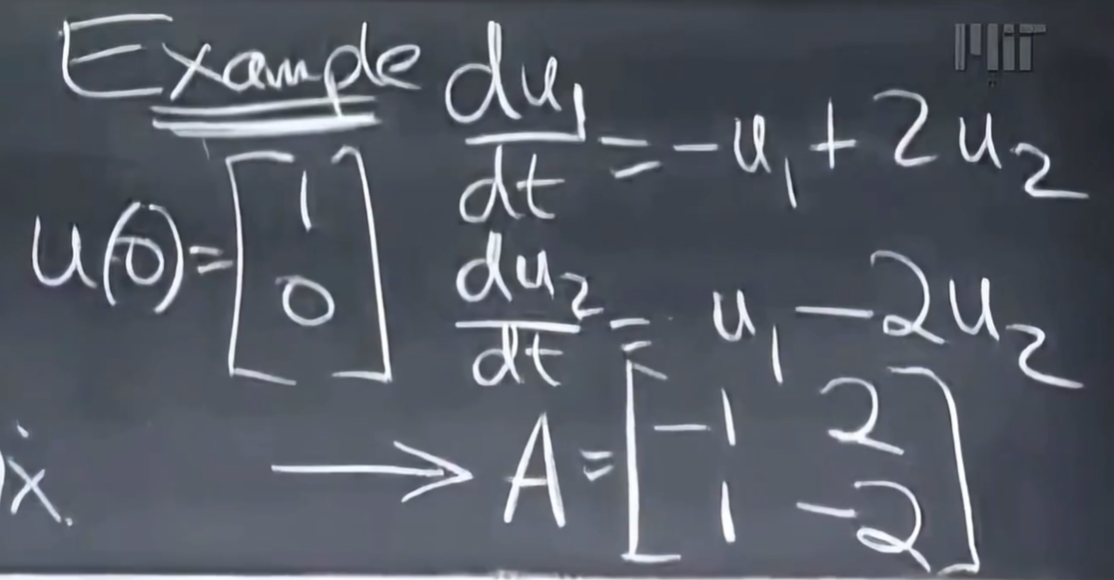 MIT
Example du₁/dt = -u₁ + 2u₂
u(0) = [1 0]
du₂/dt = u₁ - 2u₂
ix.
→ A = [-1 2
1 -2]